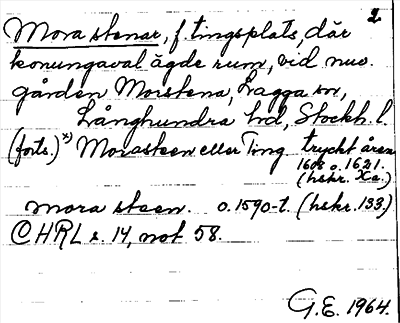 2.
Mora stenar, f. tingsplats, där
konungaval ägde rum, vid nuv.
gården Morstena, Lagga sn,
Långhundra hd, Stockh. l.
(forts.) x) Morasteen eller Ting tryckt åren
1608 o. 1621.
(hskr. Xa.)
mora steen. o. 1590-t. (hskr. 133.)
CHRL s. 14, not 58.
G.E. 1964.